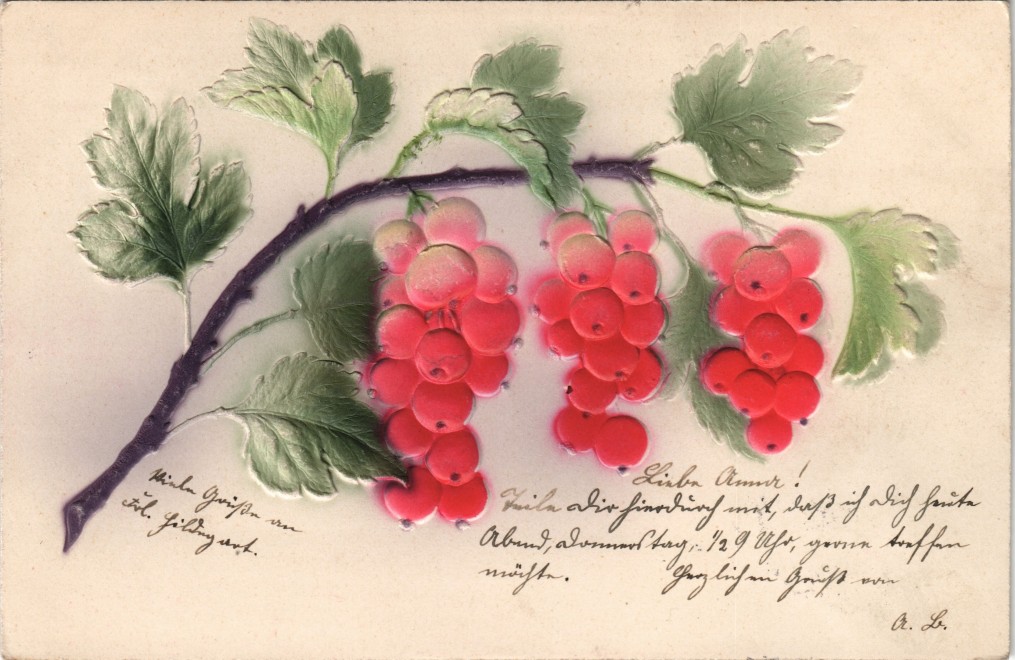 Viele Grüße an
Frl. Hildegart.
Liebe Anna!
Teile Dir hierdurch mit, daß ich Dich heute
Abend, Donnerstag, 1/2 9 Uhr, gerne treffen
möchte. Herzlichen Gruß von
A. B.